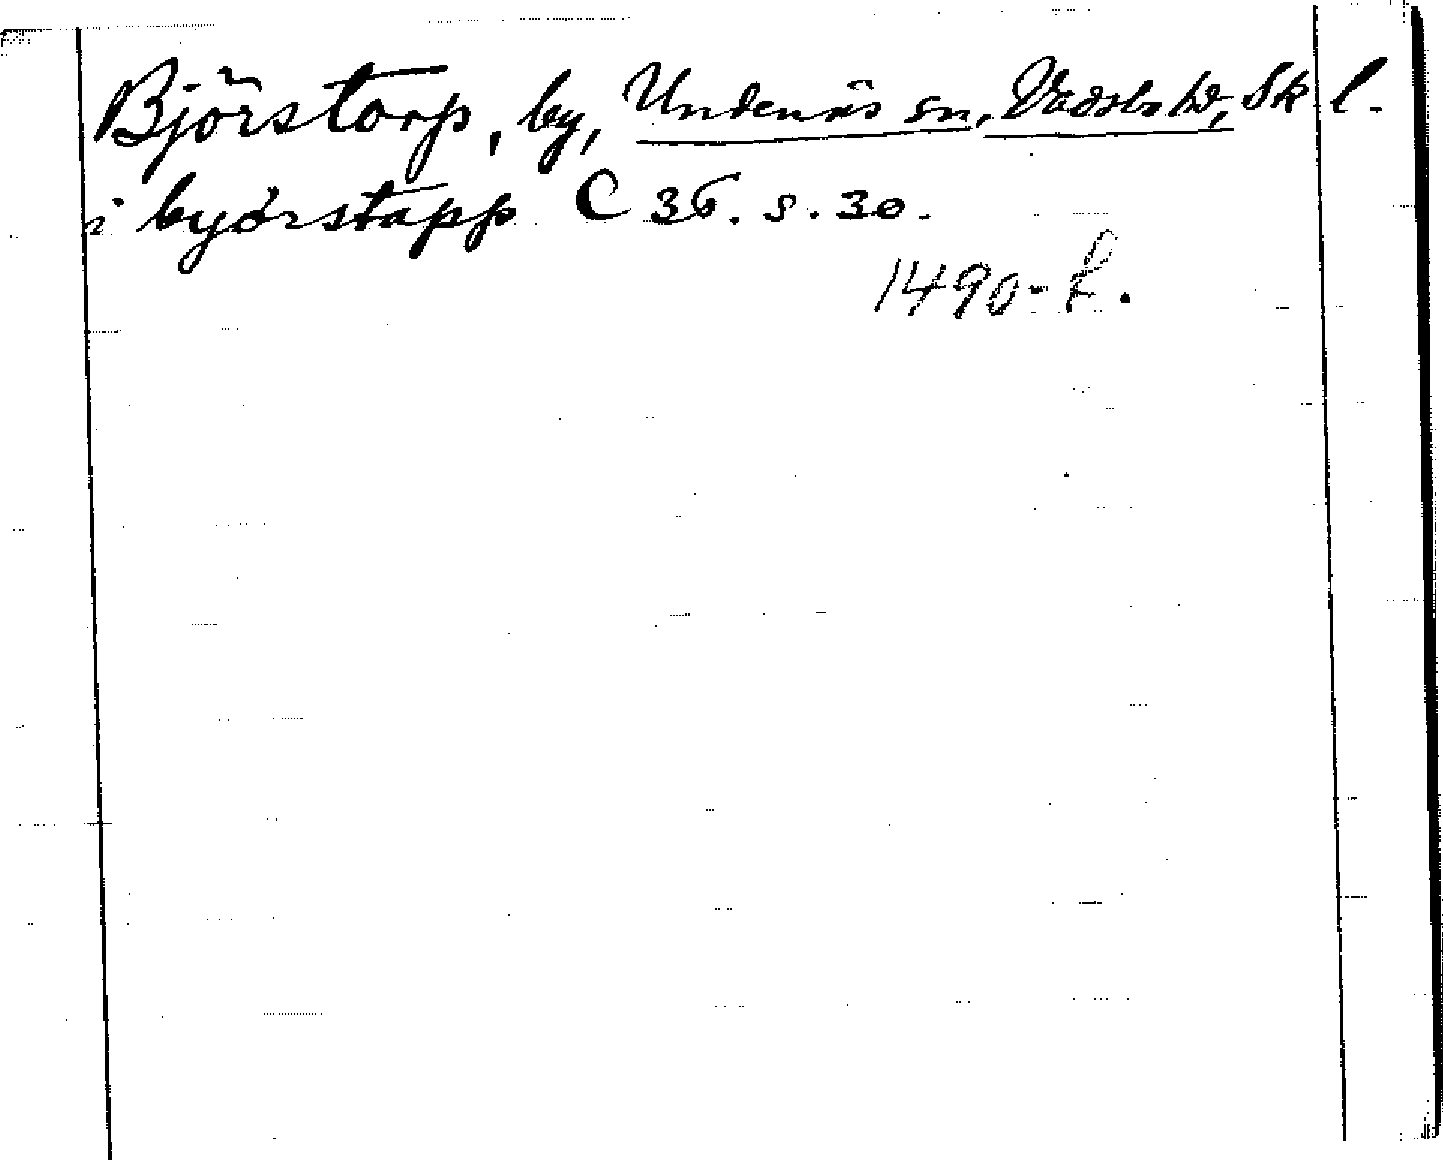 Björstorp, by, Undenäs sn, Vadsbo hd, Sk l.
i byörstapp C 36. s. 30.
1490-t.